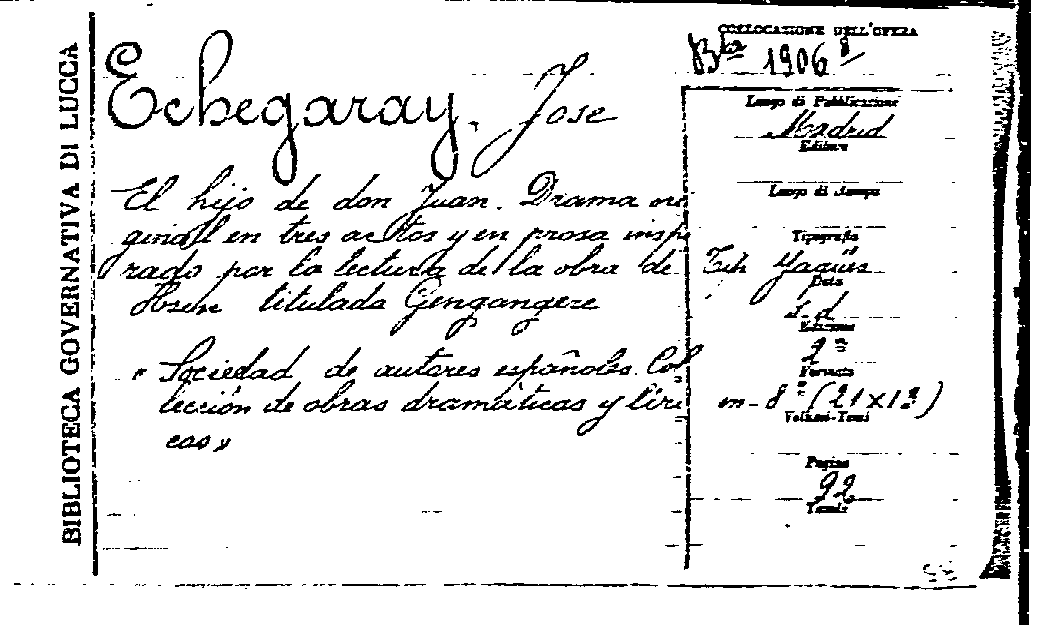 BIBLIOTECA GOVERNATIVA DI LUCCA
COLLOCAZIONE DELL'OPERA
1906
Echegaray, Jose
El hijo de don Juan. Drama ori
ginal en tres actos y en prosa inspi
rado por la lectura de la obra de
Ibsen titulada Gengangere
« Sociedad de autores españoles. Col
lección de obras dramáticas y líri
cas »
Luogo di Pubblicazione
Madrid
Editore
Luogo di Stampa
Tipografia
Tip Yagües
Data
s. d
Edizione
2ª
Formato
in-8º (21x13)
Volumi-Tomi
Pagine
92
Tavole